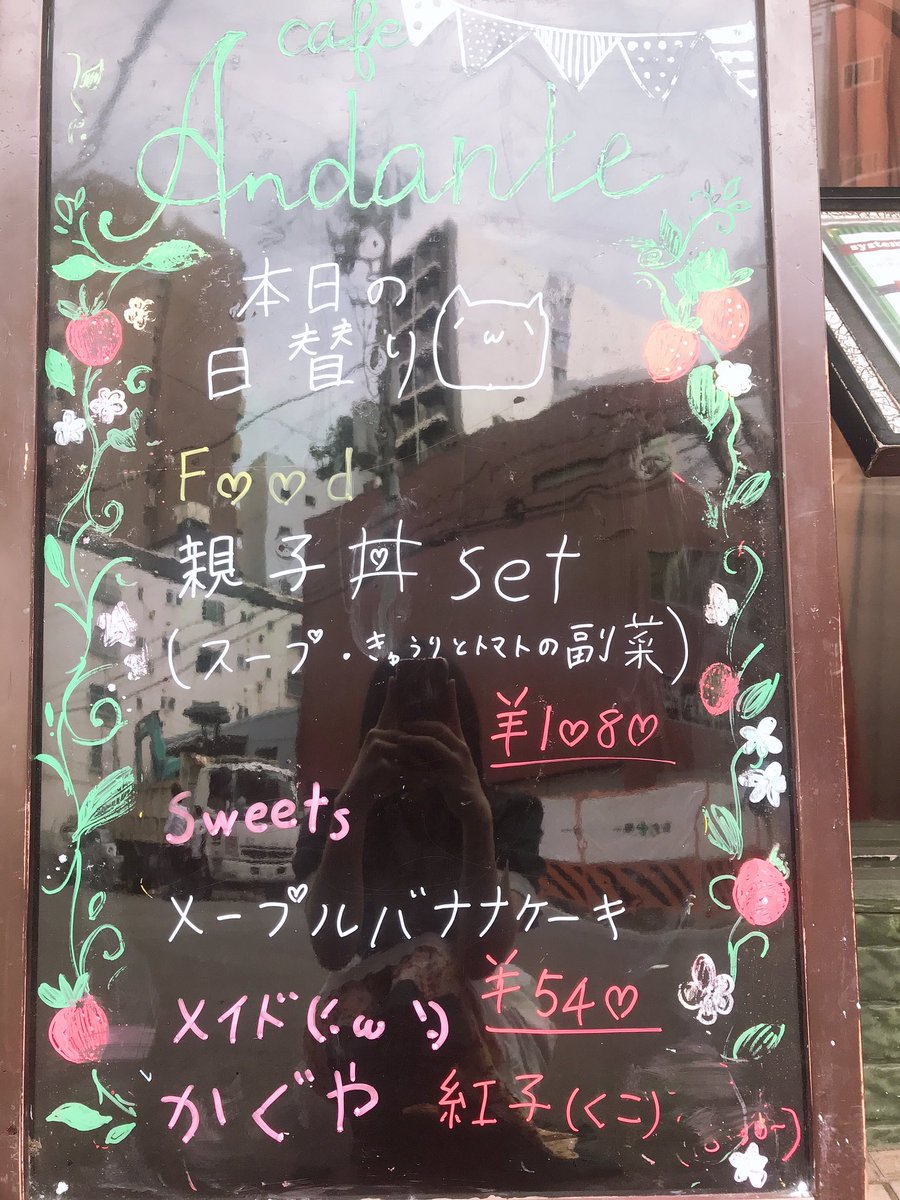 cafe
Andante
本日の
日替り
Food
親子丼 set
(スープ・きゅうりとトマトの副菜)
¥1080
Sweets
メープルバナナケーキ
¥540
メイド(´・ω・`)
かぐや 紅子(くこ)
system